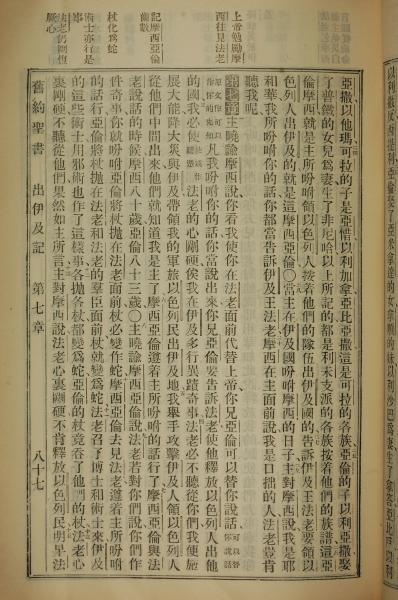 上帝勉勵摩
西往見法老
記摩西亞倫
齒數
杖化爲蛇
術士亦行是
事
法老仍剛愎
厥心
亞撒以他瑪可拉的子是亞惜以利加拿亞比亞撒這是可拉的各族亞倫的子以利亞撒娶
了普鐵的女兒爲妻生了非尼哈以上所記的都是利未支派的各族按着他們的族譜這亞
倫摩西就是主所吩咐領以色列人按着他們的隊伍出伊及國的告訴伊及王法老要領以
色列人出伊及的就是這摩西亞倫〇當主在伊及國吩咐摩西的日子主對摩西說我是耶
和華我所吩咐你的話你都當告訴伊及王法老摩西在主面前說我是口拙的人法老豈肯
聽我呢
第七章 主曉諭摩西說你看我使你在法老面前代替上帝你兄亞倫可以替你說話
凡我吩咐你的話當說出來你兄亞倫要告訴法老使他釋放以色列人出他
的國我必 法老的心剛硬俟我在伊及多行異蹟奇事法老必不聽從你們我便施
展大能降大災與伊及帶領我的軍旅以色列民出伊及地我舉手攻擊伊及人領以色列人
從他們中間出來他們就知道我是主了摩西亞倫遵着主所吩咐的話行了摩西亞倫與法
老說話的時候摩西八十歲亞倫八十三歲〇主曉諭摩西亞倫說法老若對你們說你們作
件奇事你就吩咐亞倫將杖拋在法老面前杖必變作蛇摩西亞倫去見法老遵着主所吩咐
的話行亞倫將杖拋在法老和法老的羣臣面前杖就變爲蛇法老召了博士和術士來伊及
的這些術士用邪術也作了這樣事各拋各杖都變爲蛇亞倫的杖竟吞了他們的杖法老心
裏剛硬不聽從他們果然如主所言主對摩西說法老心裏剛硬不肯釋放以色列民明早法
舊約聖書 出伊及記 第七章 八十七